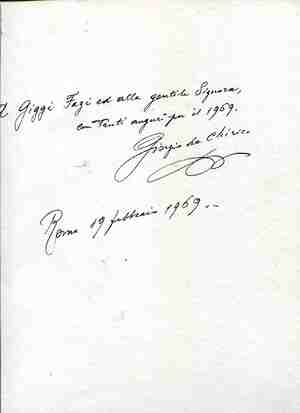 A Giggi Fazi ed alla gentile Signora,
con tanti auguri per il 1969.
Giorgio de Chirico
Roma 19 febbraio 1969..